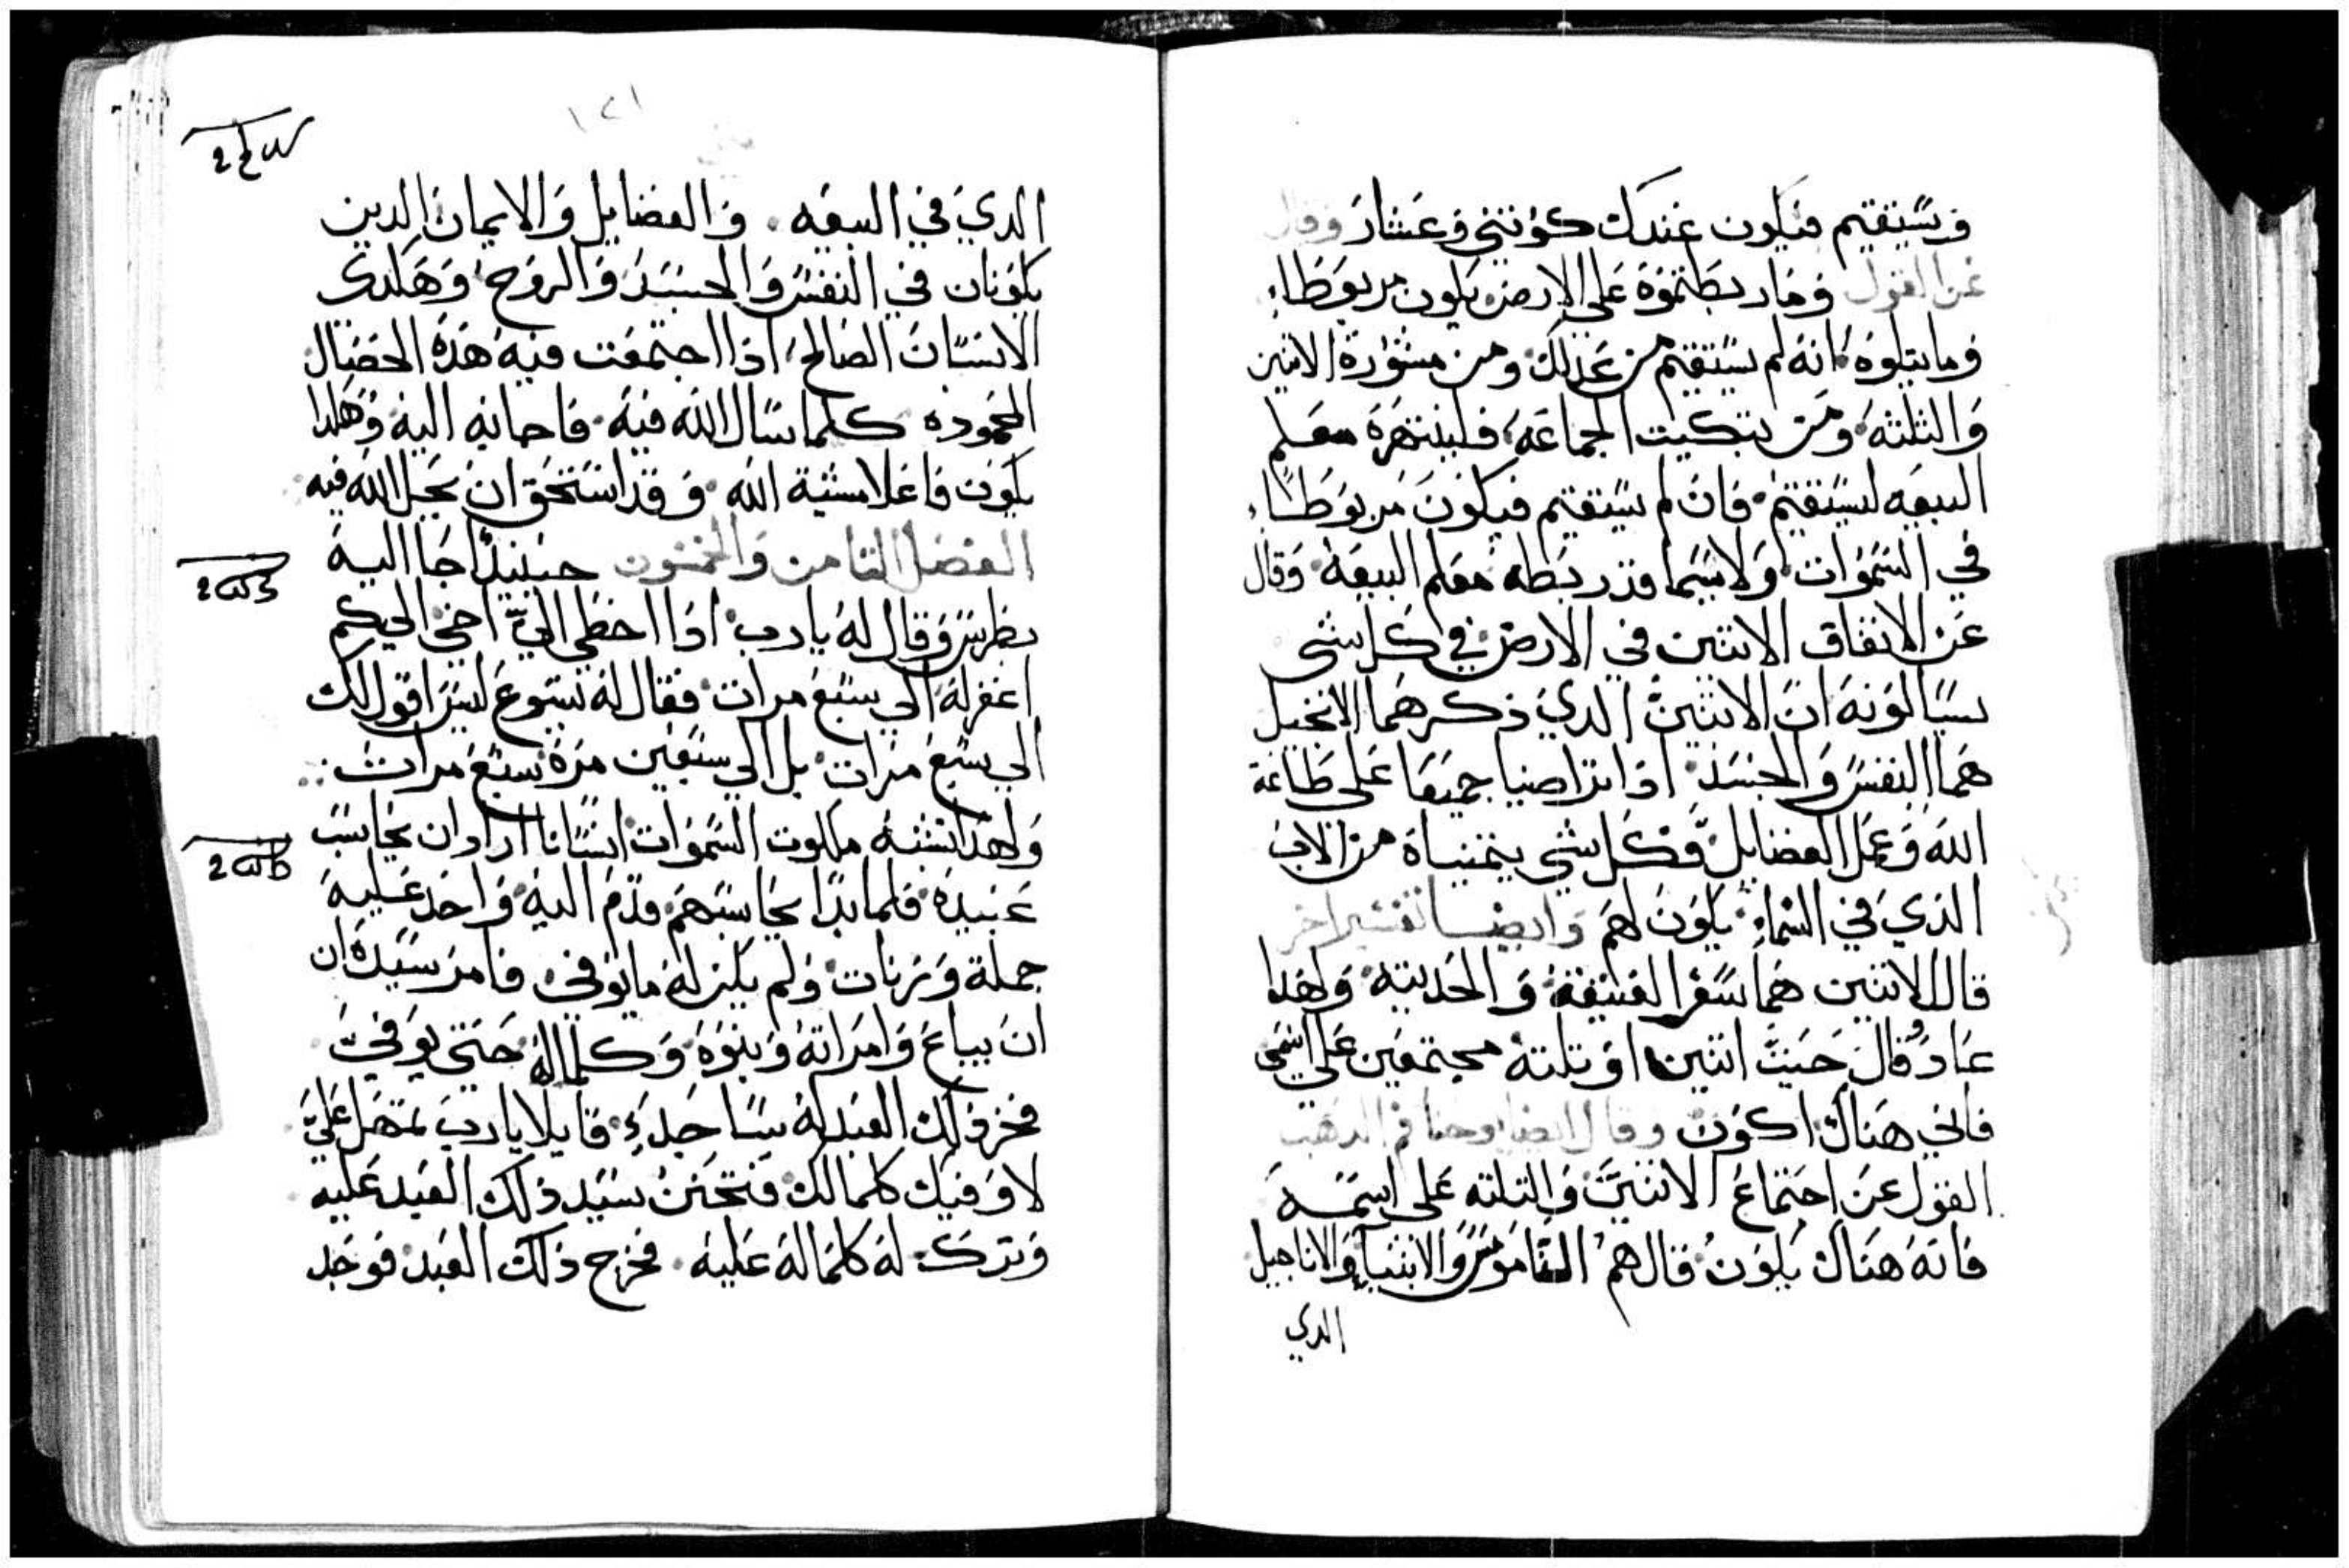 ويستقيم فيكون عندك كوثني وعشار وقال
عن القول وما ربطتموه على الارض يكون مربوطاء
وما يتلوه انه لم يستقيم من عدلك ومن مشورة الاثنين
والثلثه ومن تبكيت الجماعه فلينتهره معلم
البيعه ليستقيم فان لم يستقيم فيكون مربوطاء
في السموات ولاسيما وقد ربطه معلم البيعه وقال
عن الاتفاق الاثنين في الارض في كل شي
يسالونه ان الاثنين الدي ذكرهما الانجيل
هما النفس والجسد اذا تراضيا جميعا على طاعة
الله وعمل الفضايل وكل شي يتمنياه من الاب
الذي في السماء يكون لهم وايضا تفسير اخر
قال الاثنين هما سفرا العتيقة والحديثه ولهذا
عاد وقال حيث اثنين او تلته مجتمعين على اسمي
فاني هناك اكون وقال ايضا يوحنا فم الدهب
القول عن اجتماع الاثنين والتلته على اسمه
فانه هناك يكون قال هم الناموس والانبيا والاناجيل
الدي
١٢١
الدي في البيعه والفضايل والايمان الدين
يكونان في النفس والجسد والروح وهكدى
الانسان الصالح اذا اجتمعت فيه هذه الخصال
المحموده كلما سال الله فيه فاجابه اليه وهكدا
يكون فاعلا مشية الله وقد استحق ان يحل الله فيه
الفصل الثامن والخمسون حينيدا جا اليه
بطرس وقال له يا رب اذا اخطى اليّ اخي اليكم
اغفر له الى سبع مرات فقال له يسوع ليس اقول لك
الى سبع مرات بل الى سبعين مره سبع مرات
ولهذا تشبه ملكوت السموات انسانا اراد ان يحاسب
عبيده فلما بدا يحاسبهم قدم اليه واحد عليه
جملة وزنات ولم يكن له ما يوفي فامر سيده ان
ان يباع وامراته وبنوه وكلما له حتى يوفي
فخر ذلك العبد له ساجدء قايلا يا رب تمهل عليّ
لاوفيك كلما لك فتحنن سيد ذلك العبد عليه
وترك له كلما له عليه فخرج ذلك العبد فوجد